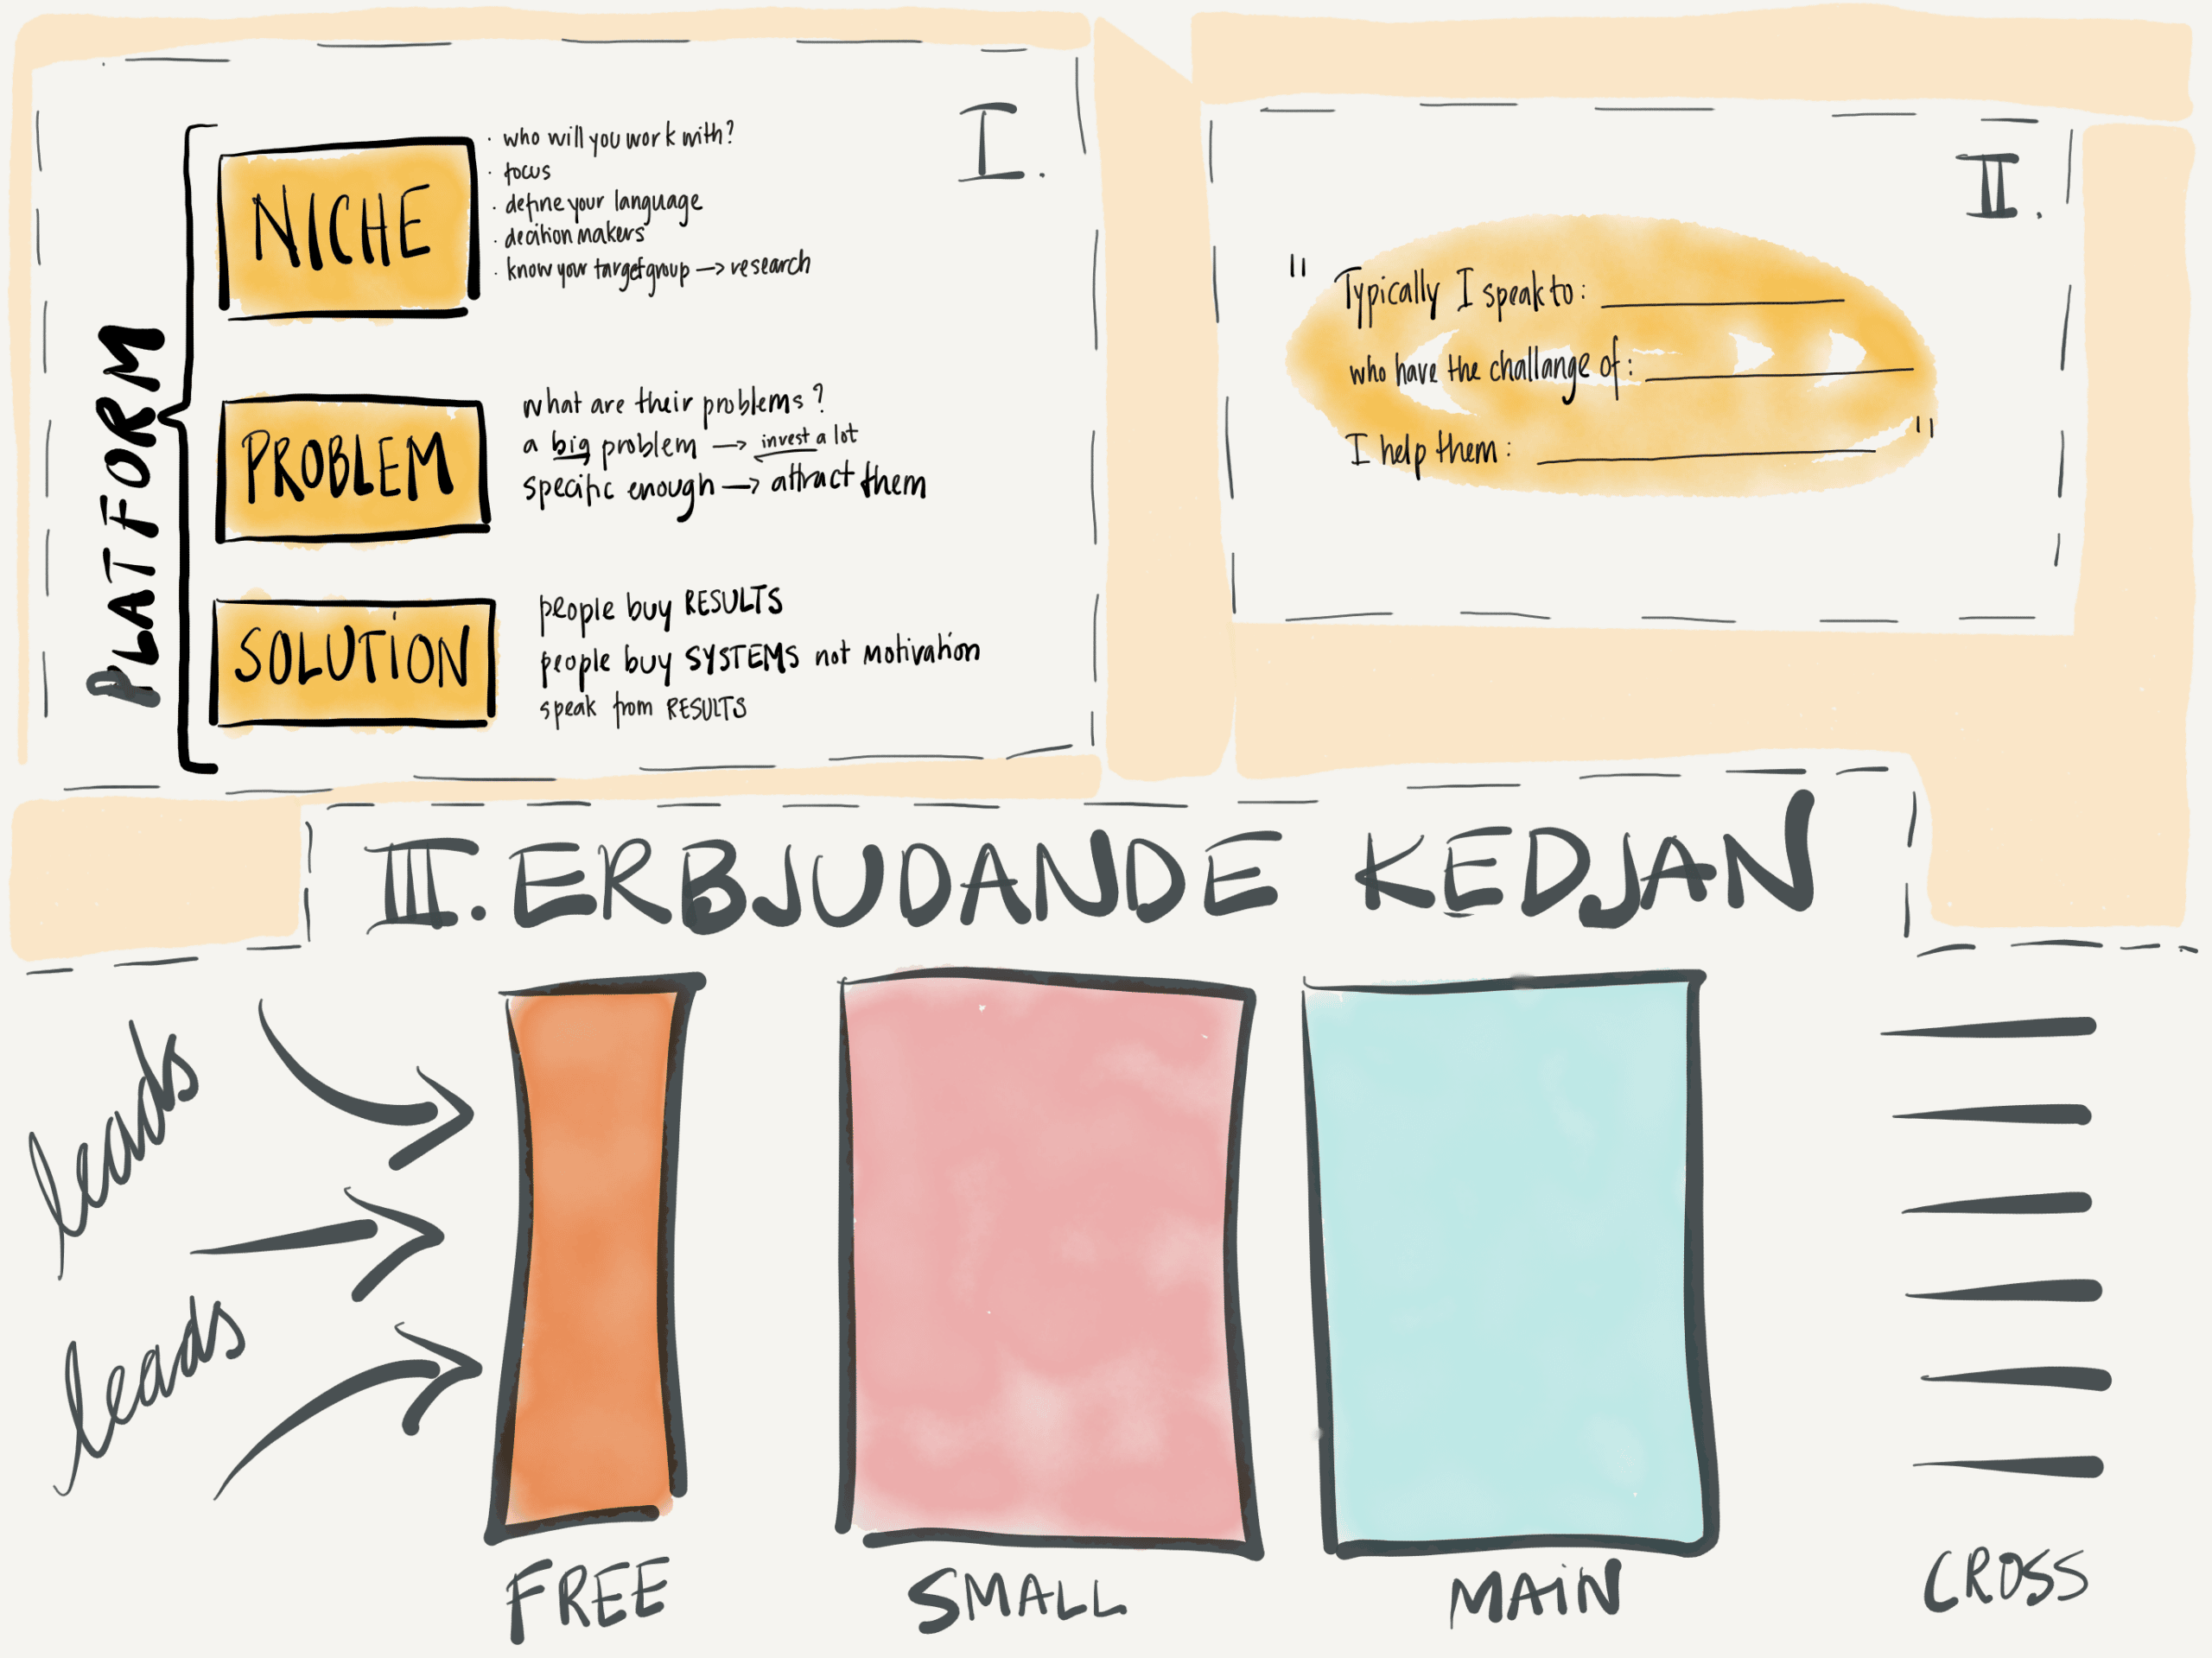 I.
PLATFORM
NICHE
· who will you work with?
· focus
· define your language
· decition makers
· know your targetgroup → research
PROBLEM
what are their problems?
a big problem → invest a lot
specific enough → attract them
SOLUTION
people buy RESULTS
people buy SYSTEMS not motivation
speak from RESULTS
II.
" Typically I speak to:
who have the challange of:
I help them: "
III. ERBJUDANDE KEDJAN
leads
leads
FREE
SMALL
MAIN
CROSS